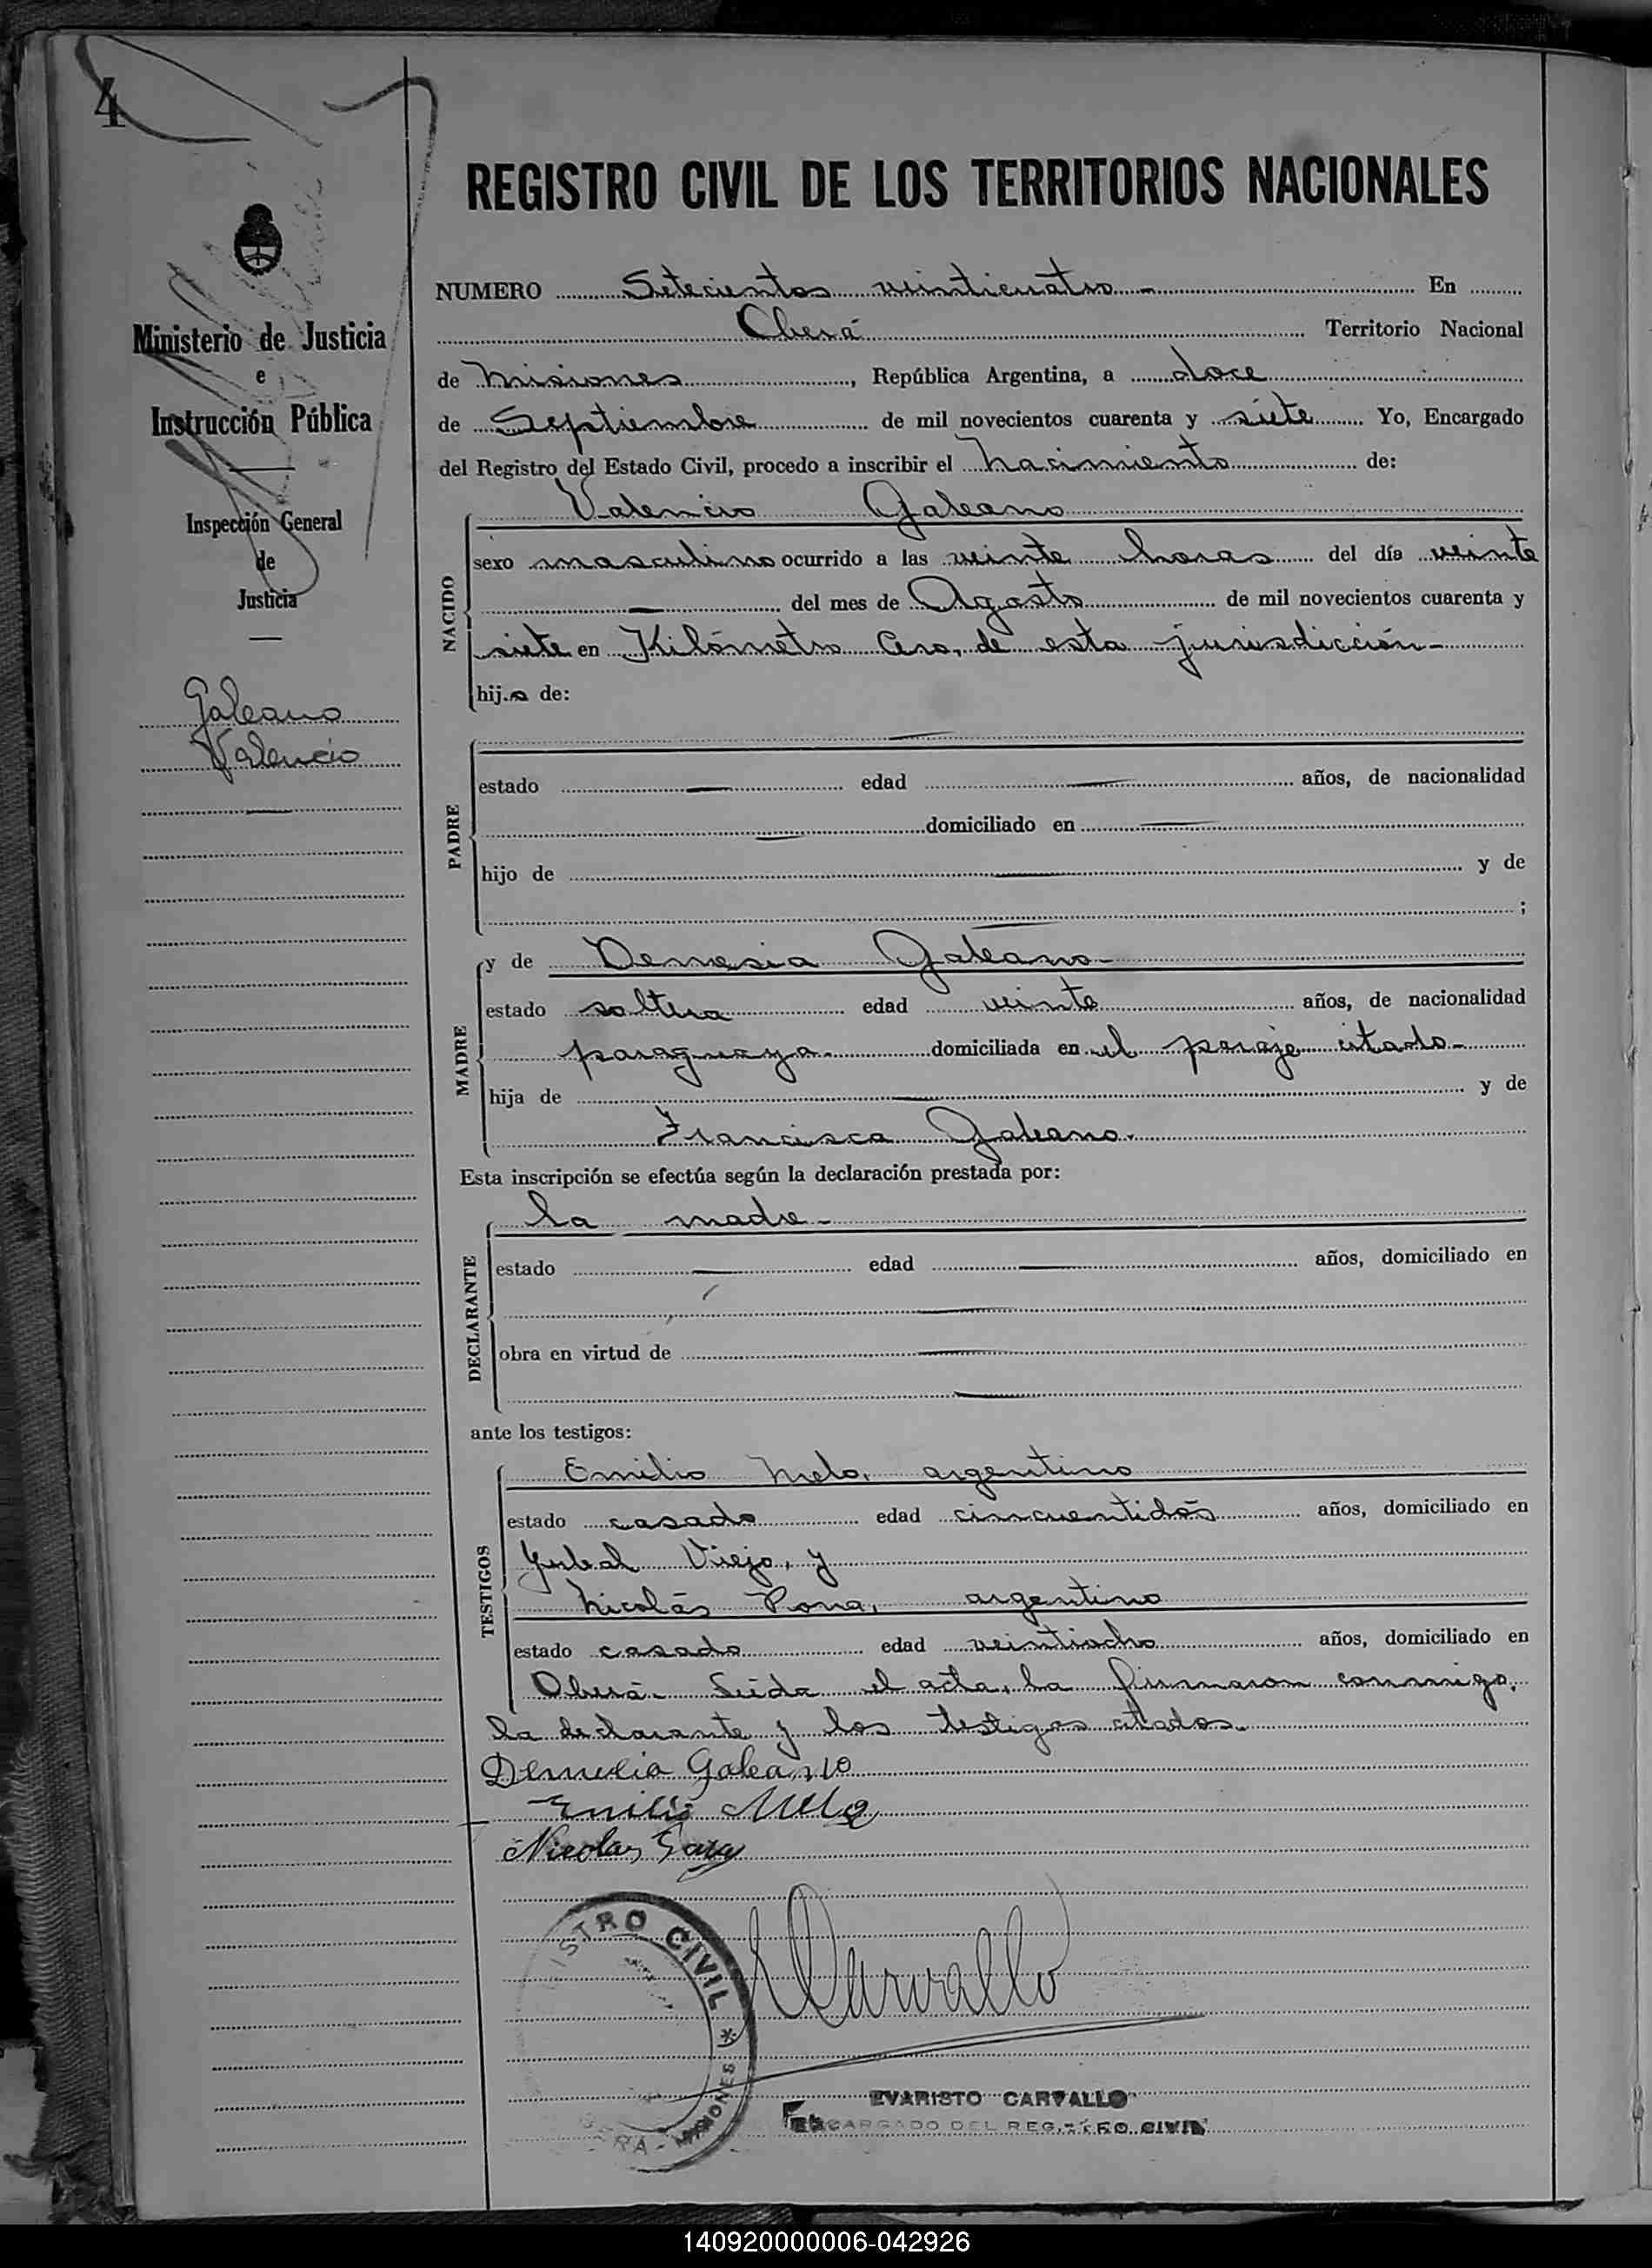 4
REGISTRO CIVIL DE LOS TERRITORIOS NACIONALES
Ministerio de Justicia
e
Instrucción Pública
Inspección General
de
Justicia
Galeano
Valencio
NUMERO Setecientos veinticuatro - En
Oberá Territorio Nacional
de Misiones, República Argentina, a doce
de Septiembre de mil novecientos cuarenta y siete Yo, Encargado
del Registro del Estado Civil, procedo a inscribir el nacimiento de:
NACIDO
Valencio Galeano
sexo masculino ocurrido a las veinte horas del día veinte
— del mes de Agosto de mil novecientos cuarenta y
siete en Kilómetro Cero, de esta jurisdicción -
hijo de:
PADRE
—
estado — edad — años, de nacionalidad
— domiciliado en —
hijo de — y de
— ;
MADRE
y de Demesia Galeano -
estado soltera edad veinte años, de nacionalidad
paraguaya domiciliada en el paraje citado -
hija de — y de
Francisca Galeano.
Esta inscripción se efectúa según la declaración prestada por:
DECLARANTE
la madre -
estado — edad — años, domiciliado en
—
obra en virtud de —
—
ante los testigos:
TESTIGOS
Emilio Melo, argentino
estado casado edad cincuentidós años, domiciliado en
Yerbal Viejo, y
Nicolás argentino
estado casado edad veintiocho años, domiciliado en
Oberá - Leida el acta, la firmaron conmigo,
la declarante y los testigos citados.
Demecia Galeano
Emilio Melo
Nicolas
Carvallo
ISTRO CIVIL * MISIONES
EVARISTO CARVALLO
ENCARGADO DEL REGISTRO CIVIL
140920000006-042926